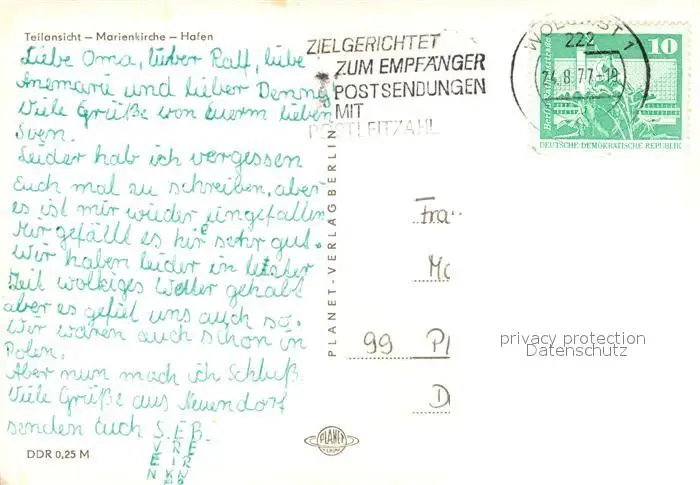 Teilansicht – Marienkirche – Hafen
Liebe Oma, lieber Ralf, liebe
Anemarie und lieber Denny
Viele Grüße von euerm lieben
Sven.
Leider hab ich vergessen
Euch mal zu schreiben, aber
es ist mir wieder eingefallen
Mir gefällt es hir sehr gut.
Wir haben leider in letzter
Zeit wolkiges Wetter gehabt
aber es gefiel uns auch so.
Wir waren auch schon in
Polen.
Aber nun mach ich Schluß.
Viele Grüße aus Neuendorf
senden Euch S. E B.
VEN
RIK
ERND
DDR 0,25 M
PLANET-VERLAG BERLIN
PLANET
ZIELGERICHTET
ZUM EMPFÄNGER
POSTSENDUNGEN
MIT
POSTLEITZAHL
WOLGAST 1
222
24.8.77-18
10
DEUTSCHE DEMOKRATISCHE REPUBLIK
Fra
Mo
99 Pl
D
privacy protection
Datenschutz